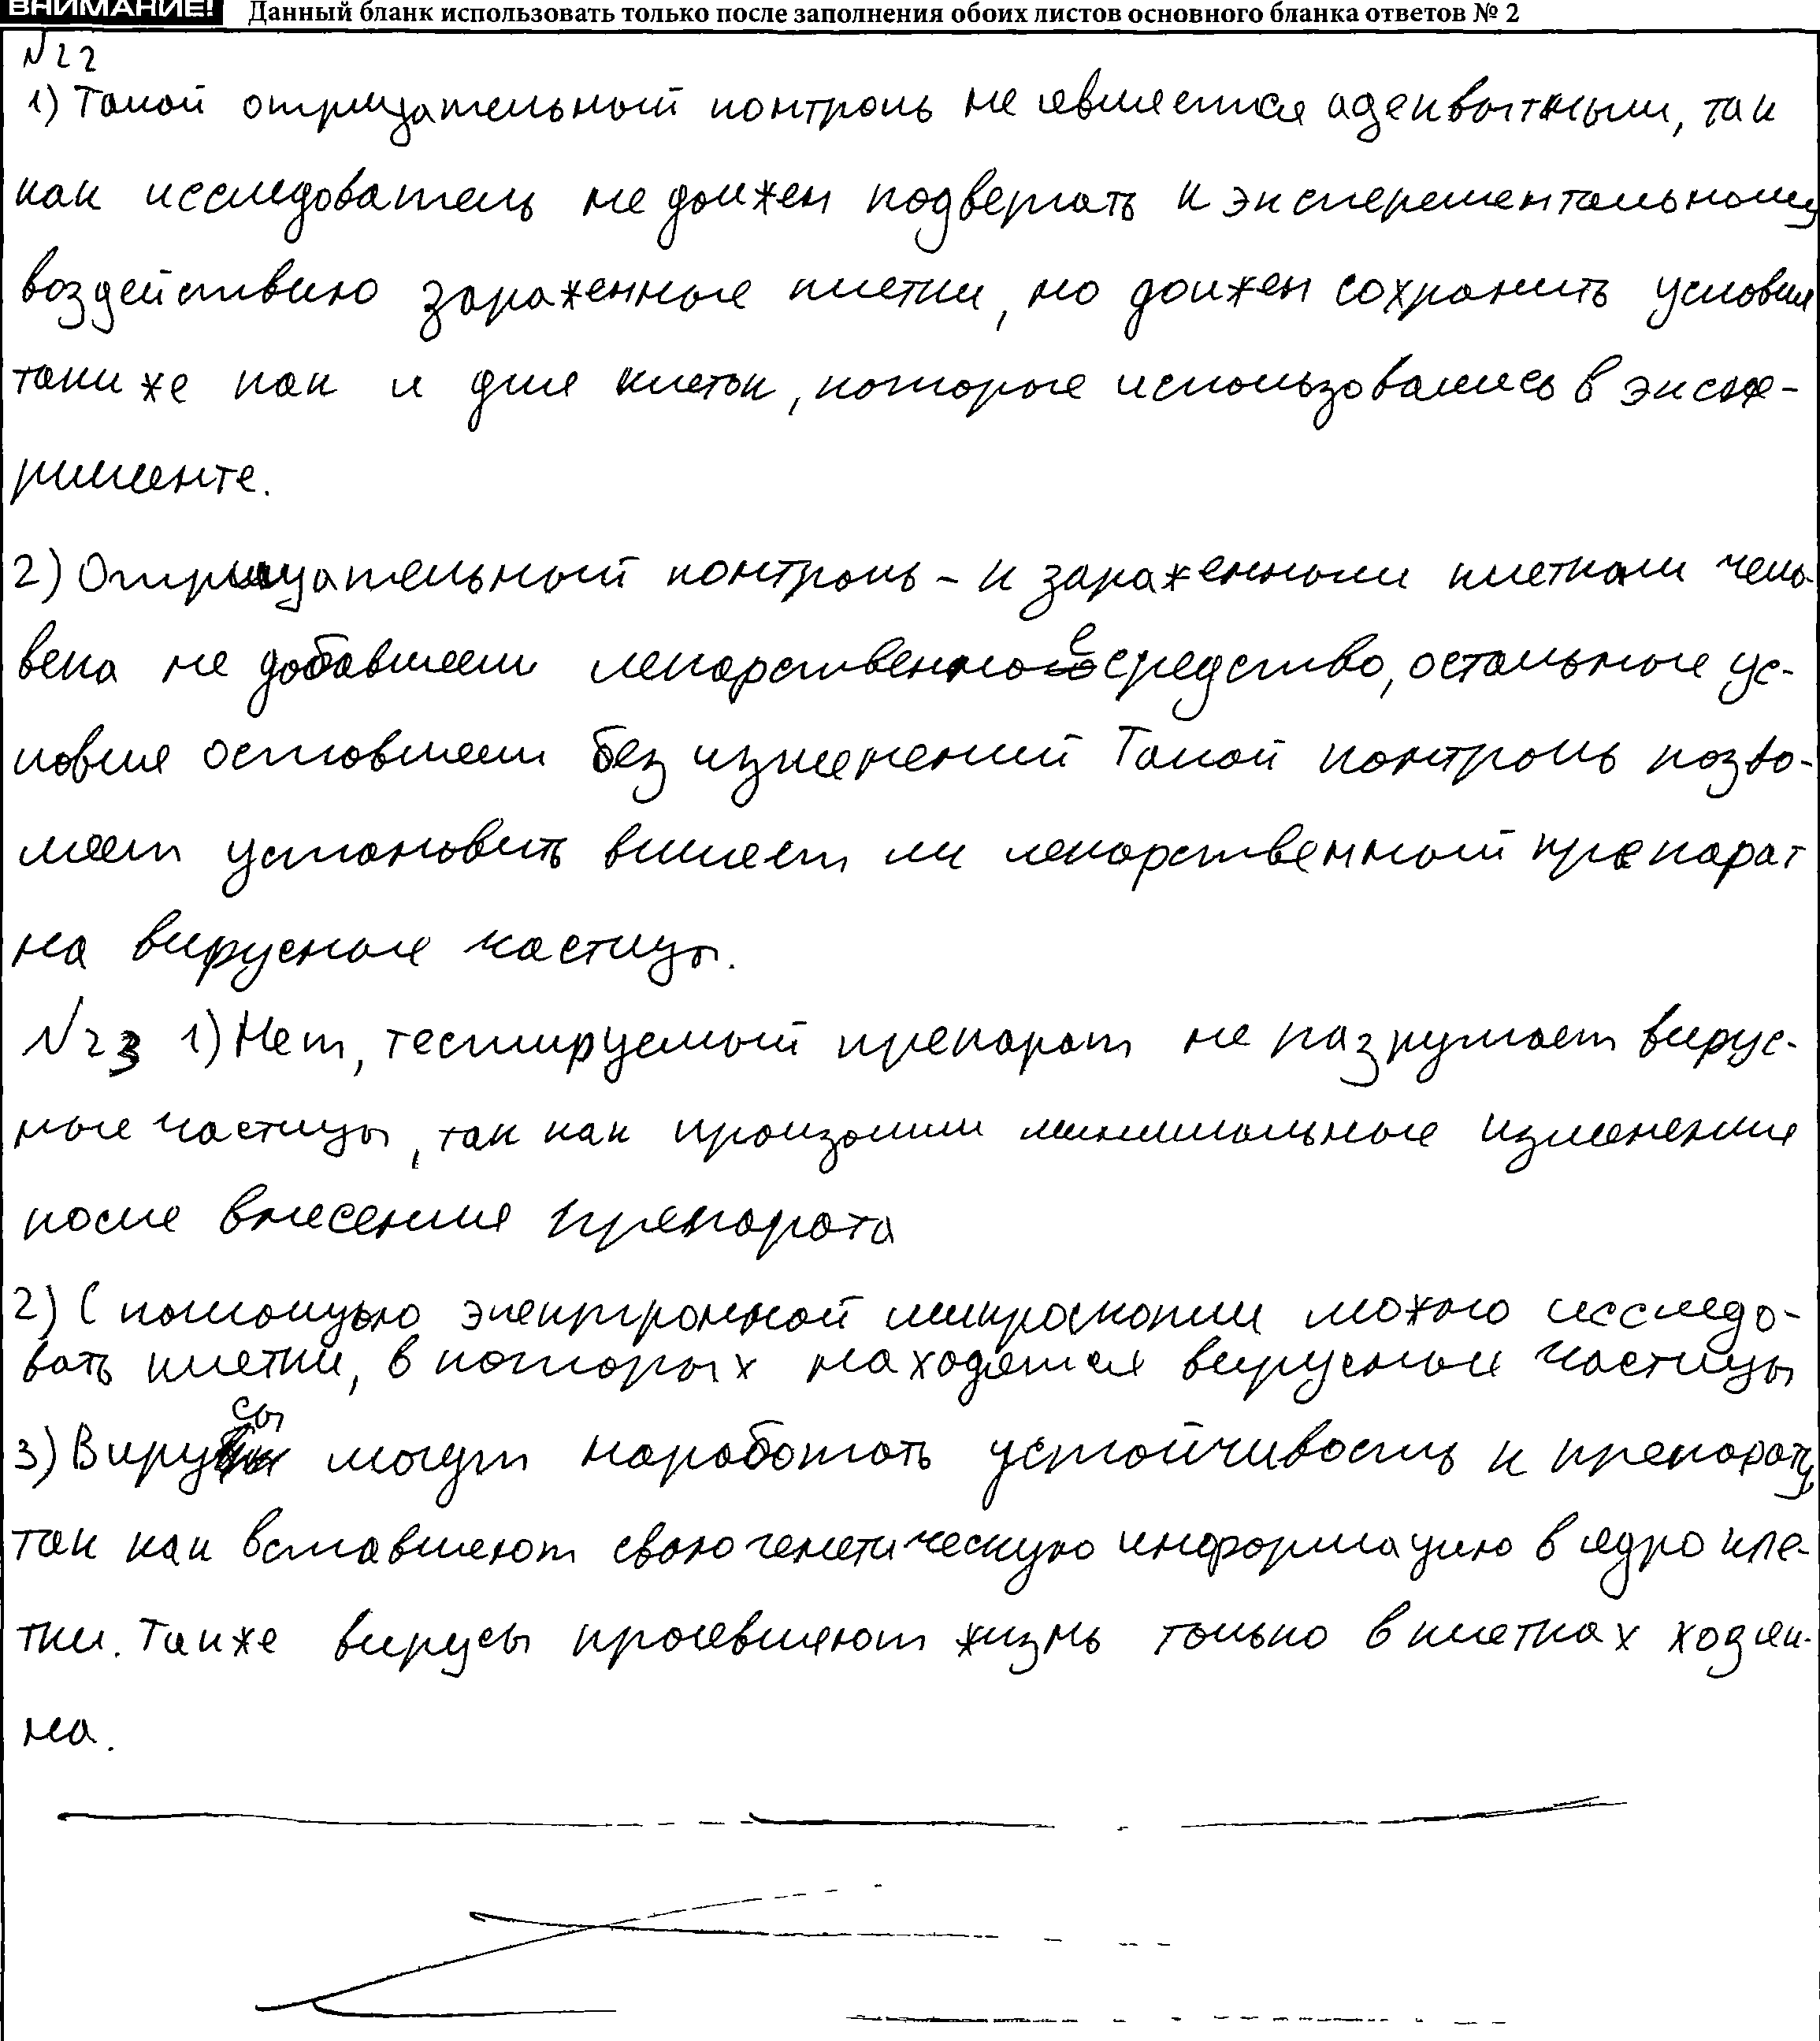 ВНИМАНИЕ! Данный бланк использовать только после заполнения обоих листов основного бланка ответов № 2
№22
1) Такой отрицательный контроль не является адекватным, так
как исследователь не должен подвергать к эксперементальному
воздействию зараженные клетки, но должен сохранить условия
таки же как и для клеток, которые использовались в экспе-
рименте.
2) Отрицательный контроль - к зараженным клеткам чело-
века не добавляем лекарственное средство, остальные ус-
ловия оставляем без изменений Такой контроль позво-
ляет установить влияет ли лекарственный препарат
на вирусные частицы.
№23 1) Нет, тестируемый препарат не разрушает вирус-
ные частицы, так как произошли минимальные изменения
после внесения препарата
2) С помощью электронной микроскопии можно исследо-
вать клетки, в которых находятся вирусные частицы
3) Вирусы могут наработать устойчивость к препарату,
так как вставляют свою генетическую информацию в ядро кле-
тки. Также вирусы проявляют жизнь только в клетках хозяи-
на.